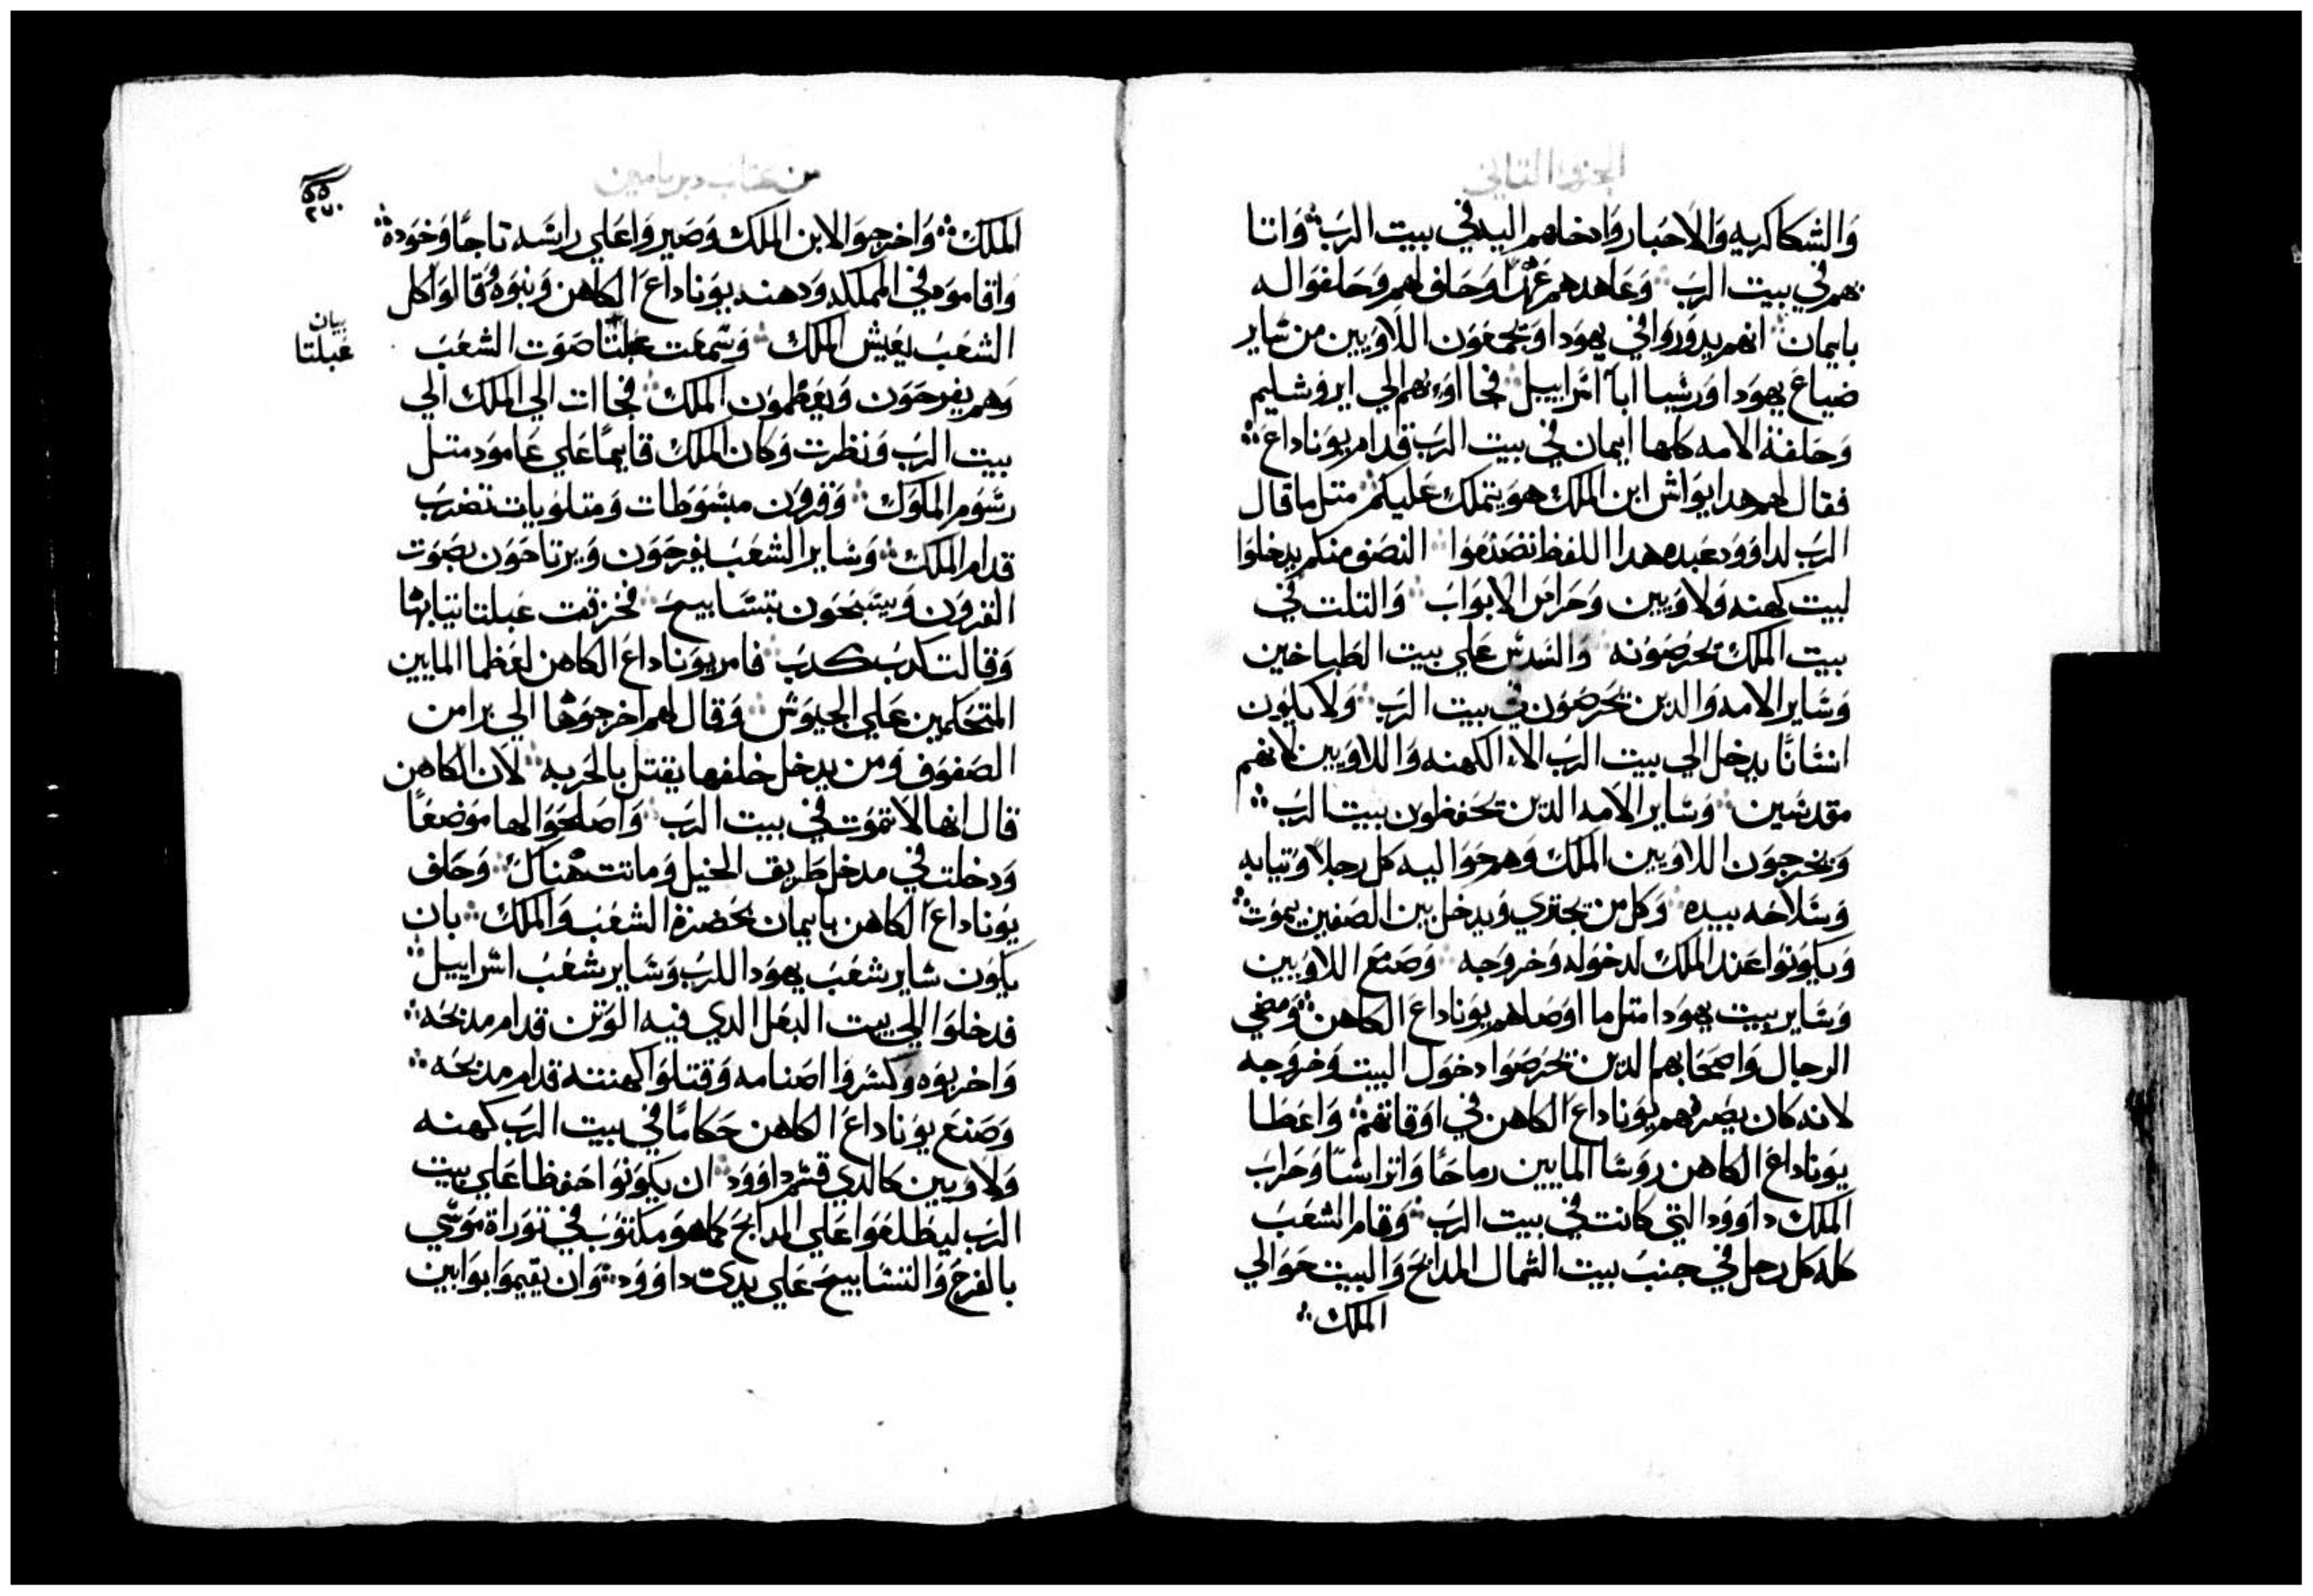 الجزو التاني
والشكاكريه والاحبار وادخلهم اليه في بيت الرب وانا
بهم في بيت الرب وعاهدهم عهدًا وحلف لهم وحلفوا له
بايمان انهم يدوروا في يهودا ويجمعون اللاويين من ساير
ضياع يهودا وريسا ابا اسراييل فجااو بهم الي ايروشليم
وحلفة الامه كلها ايمان في بيت الرب قدام يوناداع
فقال لهم هدا يواش ابن الملك هو يتملك عليكم متل ما قال
الرب لداوود عبده هدا اللفظ تصنعوا النصف منكم يدخلوا
لبيت كهنه ولاويين وحراس الابواب والتلت في
بيت الملك يحرصونه والسدس علي بيت الطباخين
وساير الامه والدين يحرصون في بيت الرب ولا يكون
انسانًا يدخل الي بيت الرب الا الكهنه واللاويين لانهم
مقدسين وساير الامه الدين يحفظون بيت الرب
ويخرجون اللاويين الملك وهم حواليه كل رجلا وتيابه
وسلاحه بيده وكل من يجتري ويدخل بين الصفين يموت
ويكونوا عند الملك لدخوله وخروجه وصنع اللاويين
وساير بيت يهودا متل ما اوصاهم يوناداع الكاهن ومضي
الرجال واصحابهم الدين يحرصوا دخول البيت وخروجه
لانه كان يصرفهم يوناداع الكاهن في اوقاتهم واعطا
يوناداع الكاهن روسا المايين رماحًا واتراسًا وحراب
الملك داوود التي كانت في بيت الرب وقام الشعب
كله كل رجل في جنب بيت الشمال المدابح والبيت حوالي
الملك
من كتاب دبريامين
٢٧٠
الملك واخرجوا لابن الملك وصيروا علي راسه تاجًا وخوده
واقاموه في المملكه ودهنه يوناداع الكاهن وبنوه وقالوا كل
الشعب يعيش الملك وسمعت عبلتا صوت الشعب
بيان
عبلتا
وهم يفرحون ويعظمون الملك فجاات الي الملك الي
بيت الرب ونظرت وكان الملك قايمًا علي عامود متل
رسوم الملوك وقرون مبسوطات ومتلويات تضرب
قدام الملك وساير الشعب يفرحون ويرتاحون بصوت
القرون ويسبحون بتسابيح فخزقت عبلتا تيابها
وقالت كدب كدب فامر يوناداع الكاهن لعظما المايين
المتحكمين علي الجيوش وقال لهم اخرجوها الي برا من
الصفوف ومن يدخل خلفها يقتل بالحربه لان الكاهن
قال انها لا تموت في بيت الرب واصلحوا لها موضعًا
ودخلت في مدخل طريق الخيل وماتت هناك وحلف
يوناداع الكاهن بايمان بحضرة الشعب والملك بان
يكون ساير شعب يهودا للرب وساير شعب اسراييل
فدخلوا الي بيت البعل الدي فيه الوتن قدام مدبحه
واخربوه وكسروا اصنامه وقتلوا كهنته قدام مدبحه
وصنع يوناداع الكاهن حكامًا في بيت الرب كهنه
ولاويين كالدي قسم داوود ان يكونوا حفظا علي بيت
الرب ليطلعوا علي المدابح كما هو مكتوب في توراة موسي
بالفرح والتسابيح علي يدي داوود وان يقيموا بوابين